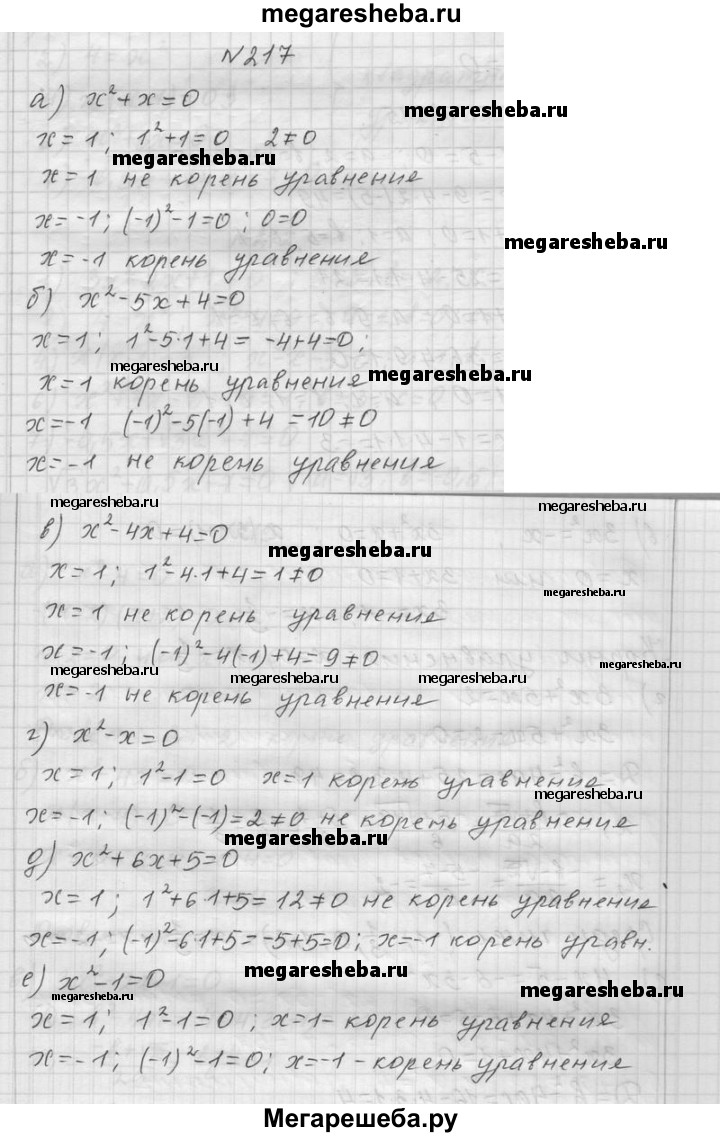 megaresheba.ru
N217
а) x²+x=0
megaresheba.ru
x=1; 1²+1=0 2≠0
megaresheba.ru
x=1 не корень уравнение
x=-1; (-1)²-1=0; 0=0
megaresheba.ru
x=-1 корень уравнения
б) x²-5x+4=0
x=1; 1²-5·1+4= -4+4=0;
megaresheba.ru
megaresheba.ru
x=1 корень уравнения
x=-1 (-1)²-5(-1)+4 =10≠0
x=-1 не корень уравнения
megaresheba.ru
megaresheba.ru
в) x²-4x+4=0
megaresheba.ru
x=1; 1²-4·1+4=1≠0
megaresheba.ru
x=1 не корень уравнения
x=-1; (-1)²-4(-1)+4=9≠0
megaresheba.ru
megaresheba.ru
megaresheba.ru
x=-1 не корень уравнения
г) x²-x=0
x=1; 1²-1=0 x=1 корень уравнение
megaresheba.ru
x=-1; (-1)²-(-1)=2≠0 не корень уравнение
megaresheba.ru
д) x²+6x+5=0
x=1; 1²+6·1+5=12≠0 не корень уравнение
x=-1; (-1)²-6·1+5=-5+5=0; x=-1 корень уравн.
megaresheba.ru
е) x²-1=0
megaresheba.ru
megaresheba.ru
x=1; 1²-1=0; x=1- корень уравнения
x=-1; (-1)²-1=0; x=-1 - корень уравнения
Мегарешеба.ру